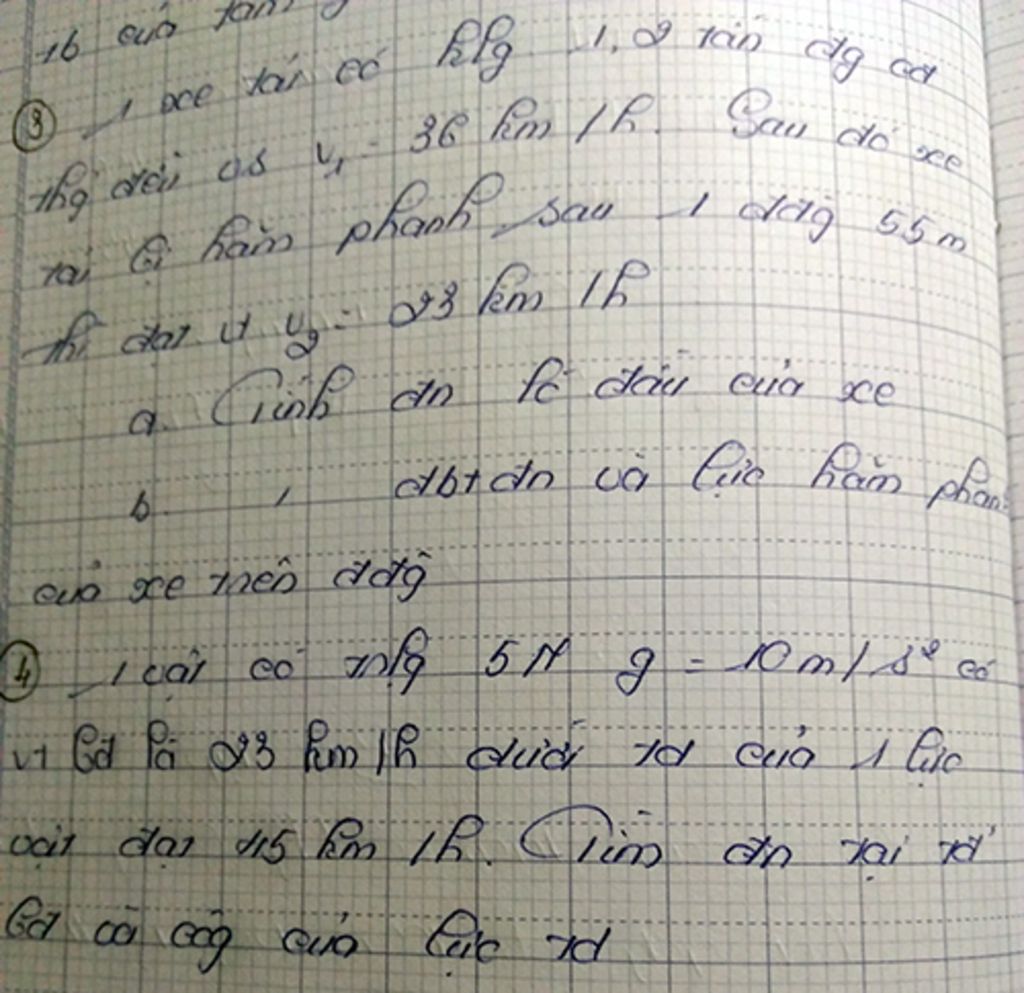 tb của tàn
③ 1 xe tải có klg 1,2 tấn đg cđ
thg đều vs v₁ = 36 km/h. Sau đó xe
tải bị hãm phanh sau 1 đđg 55m
thì đạt vt v₂ = 23 km/h
a. Tính đn lđ đầu của xe
b. / đbt đn và lực hãm phan
của xe trên đđg
④ 1 vật có trlg 5N g = 10m/s² có
vt bđ là 23 km/h dưới td của 1 lực
vật đạt 45 km/h. Tìm đn tại tđ
bđ và côg của lực td